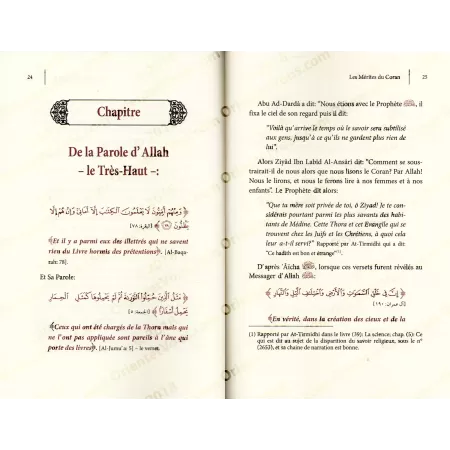 24
Chapitre
De la Parole d'Allah
– le Très-Haut –:
﴿ وَمِنْهُمْ أُمِّيُّونَ لَا يَعْلَمُونَ الْكِتَابَ إِلَّا أَمَانِيَّ وَإِنْ هُمْ إِلَّا
يَظُنُّونَ ﴾ [البقرة: ٧٨]
﴾Et il y a parmi eux des illettrés qui ne savent
rien du Livre hormis des prétentions﴿. [Al-Baqa-
rah: 78].
Et Sa Parole:
﴿ مَثَلُ الَّذِينَ حُمِّلُوا التَّوْرَاةَ ثُمَّ لَمْ يَحْمِلُوهَا كَمَثَلِ الْحِمَارِ
يَحْمِلُ أَسْفَارًا ﴾ [الجمعة: ٥]
﴾Ceux qui ont été chargés de la Thora mais qui
ne l'ont pas appliquée sont pareils à l'âne qui
porte des livres﴿. [Al-Jumu'a: 5] – le verset.
Les Mérites du Coran
25
Abu Ad-Dardâ a dit: "Nous étions avec le Prophète ﷺ, il
fixa le ciel de son regard puis il dit:
"Voilà qu'arrive le temps où le savoir sera subtilisé
aux gens, jusqu'à ce qu'ils ne gardent plus rien de
lui".
Alors Ziyâd Ibn Labîd Al-Ansârî dit: "Comment se sous-
trairait-il de nous alors que nous lisons le Coran? Par Allah!
Nous le lirons, et nous le ferons lire à nos femmes et à nos
enfants". Le Prophète dit alors:
"Que ta mère soit privée de toi, ô Ziyad! Je te con-
sidérais pourtant parmi les plus savants des habi-
tants de Médine. Cette Thora et cet Evangile qui se
trouvent chez les Juifs et les Chrétiens, à quoi cela
leur a-t-il servi?" Rapporté par At-Tirmidhi qui a dit: "Ce
hadith est bon et étrange"⁽¹⁾.
D'après 'Âïcha, lorsque ces versets furent révélés au
Messager d'Allah ﷺ
﴿ إِنَّ فِي خَلْقِ السَّمَاوَاتِ وَالْأَرْضِ وَاخْتِلَافِ اللَّيْلِ وَالنَّهَارِ ﴾
[آل عمران: ١٩٠]
﴾En vérité, dans la création des cieux et de la
(1) Rapporté par At-Tirmidhi dans le livre (39): La science; chap. (5): Ce
qui est dit au sujet de la disparition du savoir religieux, sous le n°
(2653), et sa chaine de narration est bonne.